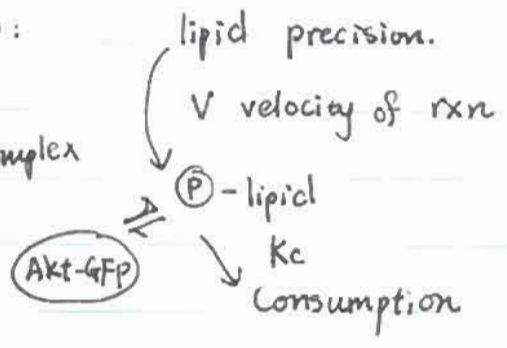 : lipid precision.
V velocity of rxn
mplex
Ⓟ-lipid
Akt-GFP
Kc
Consumption